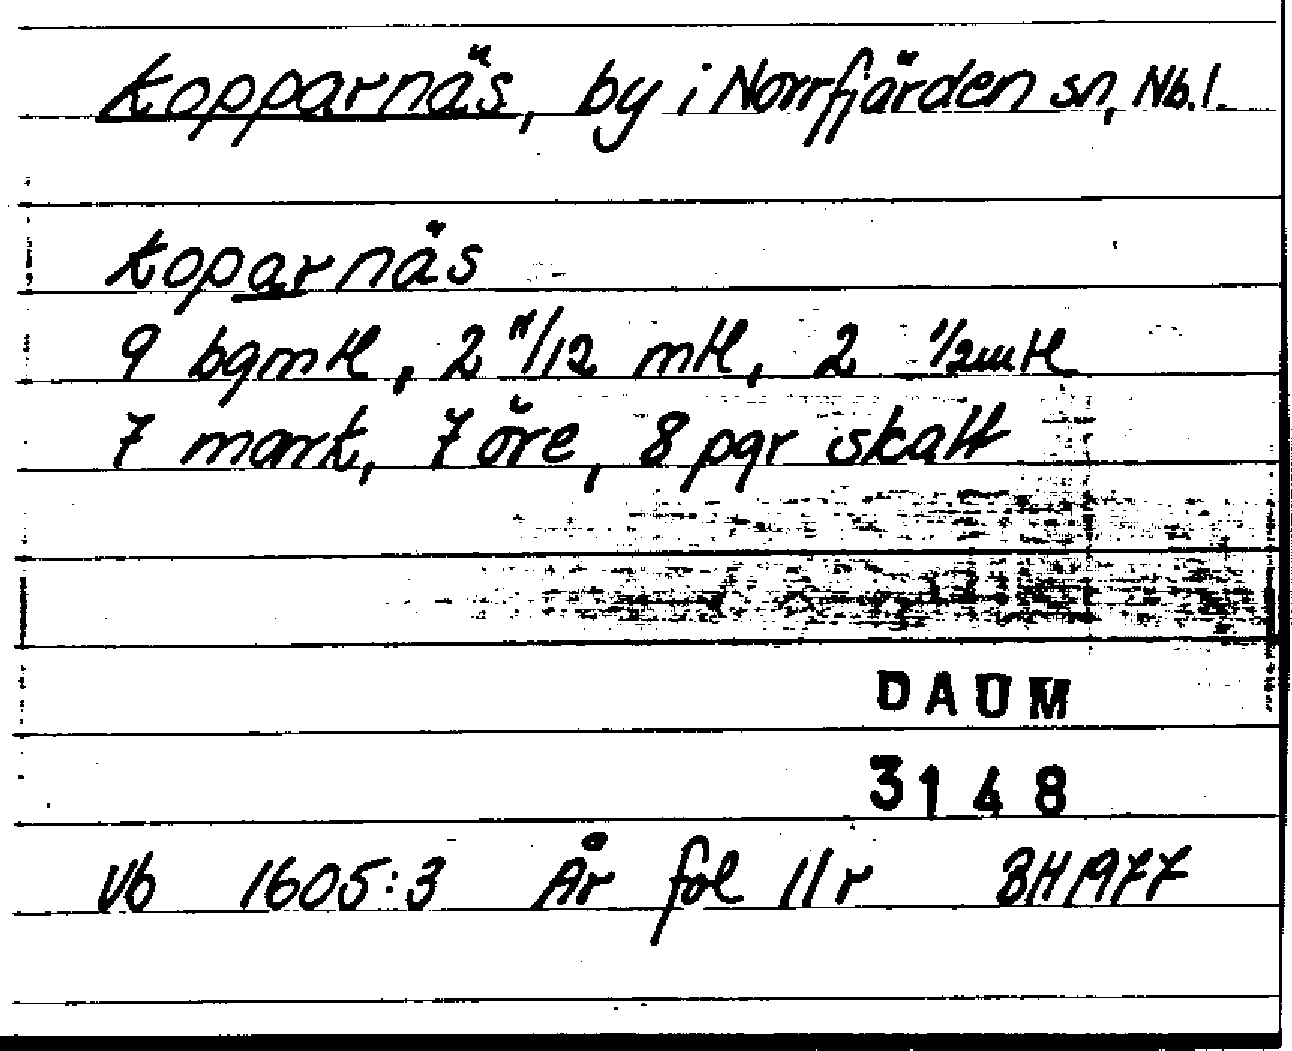 Kopparnäs, by i Norrfjärden sn, Nb.l.
Koparnäs
9 bgmtl, 2 11/12 mtl, 2 1/2 mtl
7 mark, 7 öre, 8 pgr skatt
DAUM
3148
Vb 1605:3 År fol 11 r BH 1977